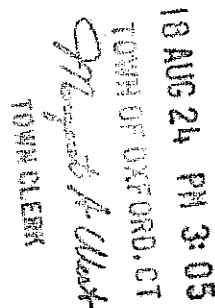 18 AUG 24 PM 3:05
TOWN OF OXFORD, CT
Margaret A. West
TOWN CLERK